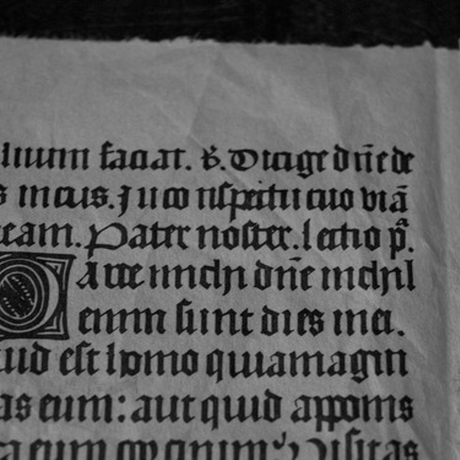 lium faciat. R. Dirige dñe de
s meus. In conspectu tuo viã
eam. Pater noster. lectio pª.
PArce michi dñe nichil
enim sunt dies mei.
uid est homo quia magni
as eum: aut quid apponis
ga eum cor tuum? Visitas